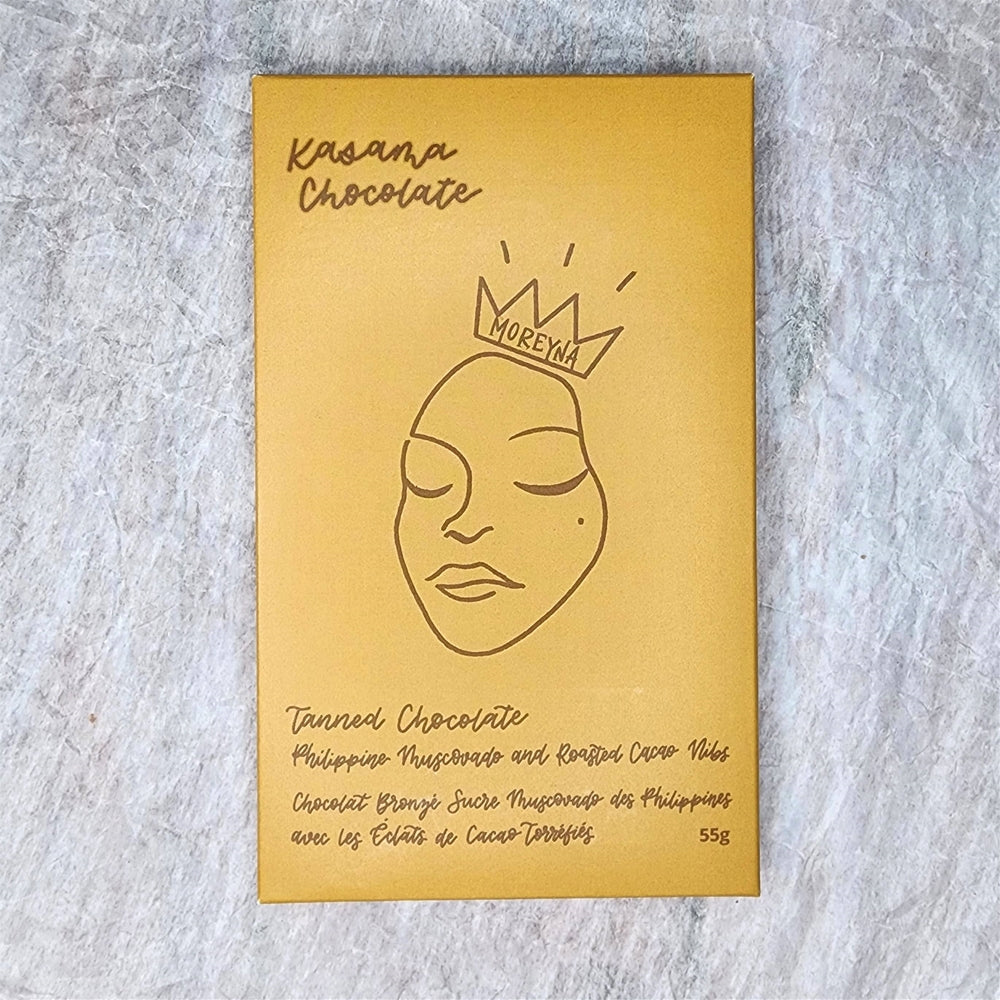 Kasama
Chocolate
MOREYNA
Tanned Chocolate
Philippine Muscovado and Roasted Cacao Nibs
Chocolat Bronzé Sucre Muscovado des Philippines
avec les Éclats de Cacao Torréfiés
55g